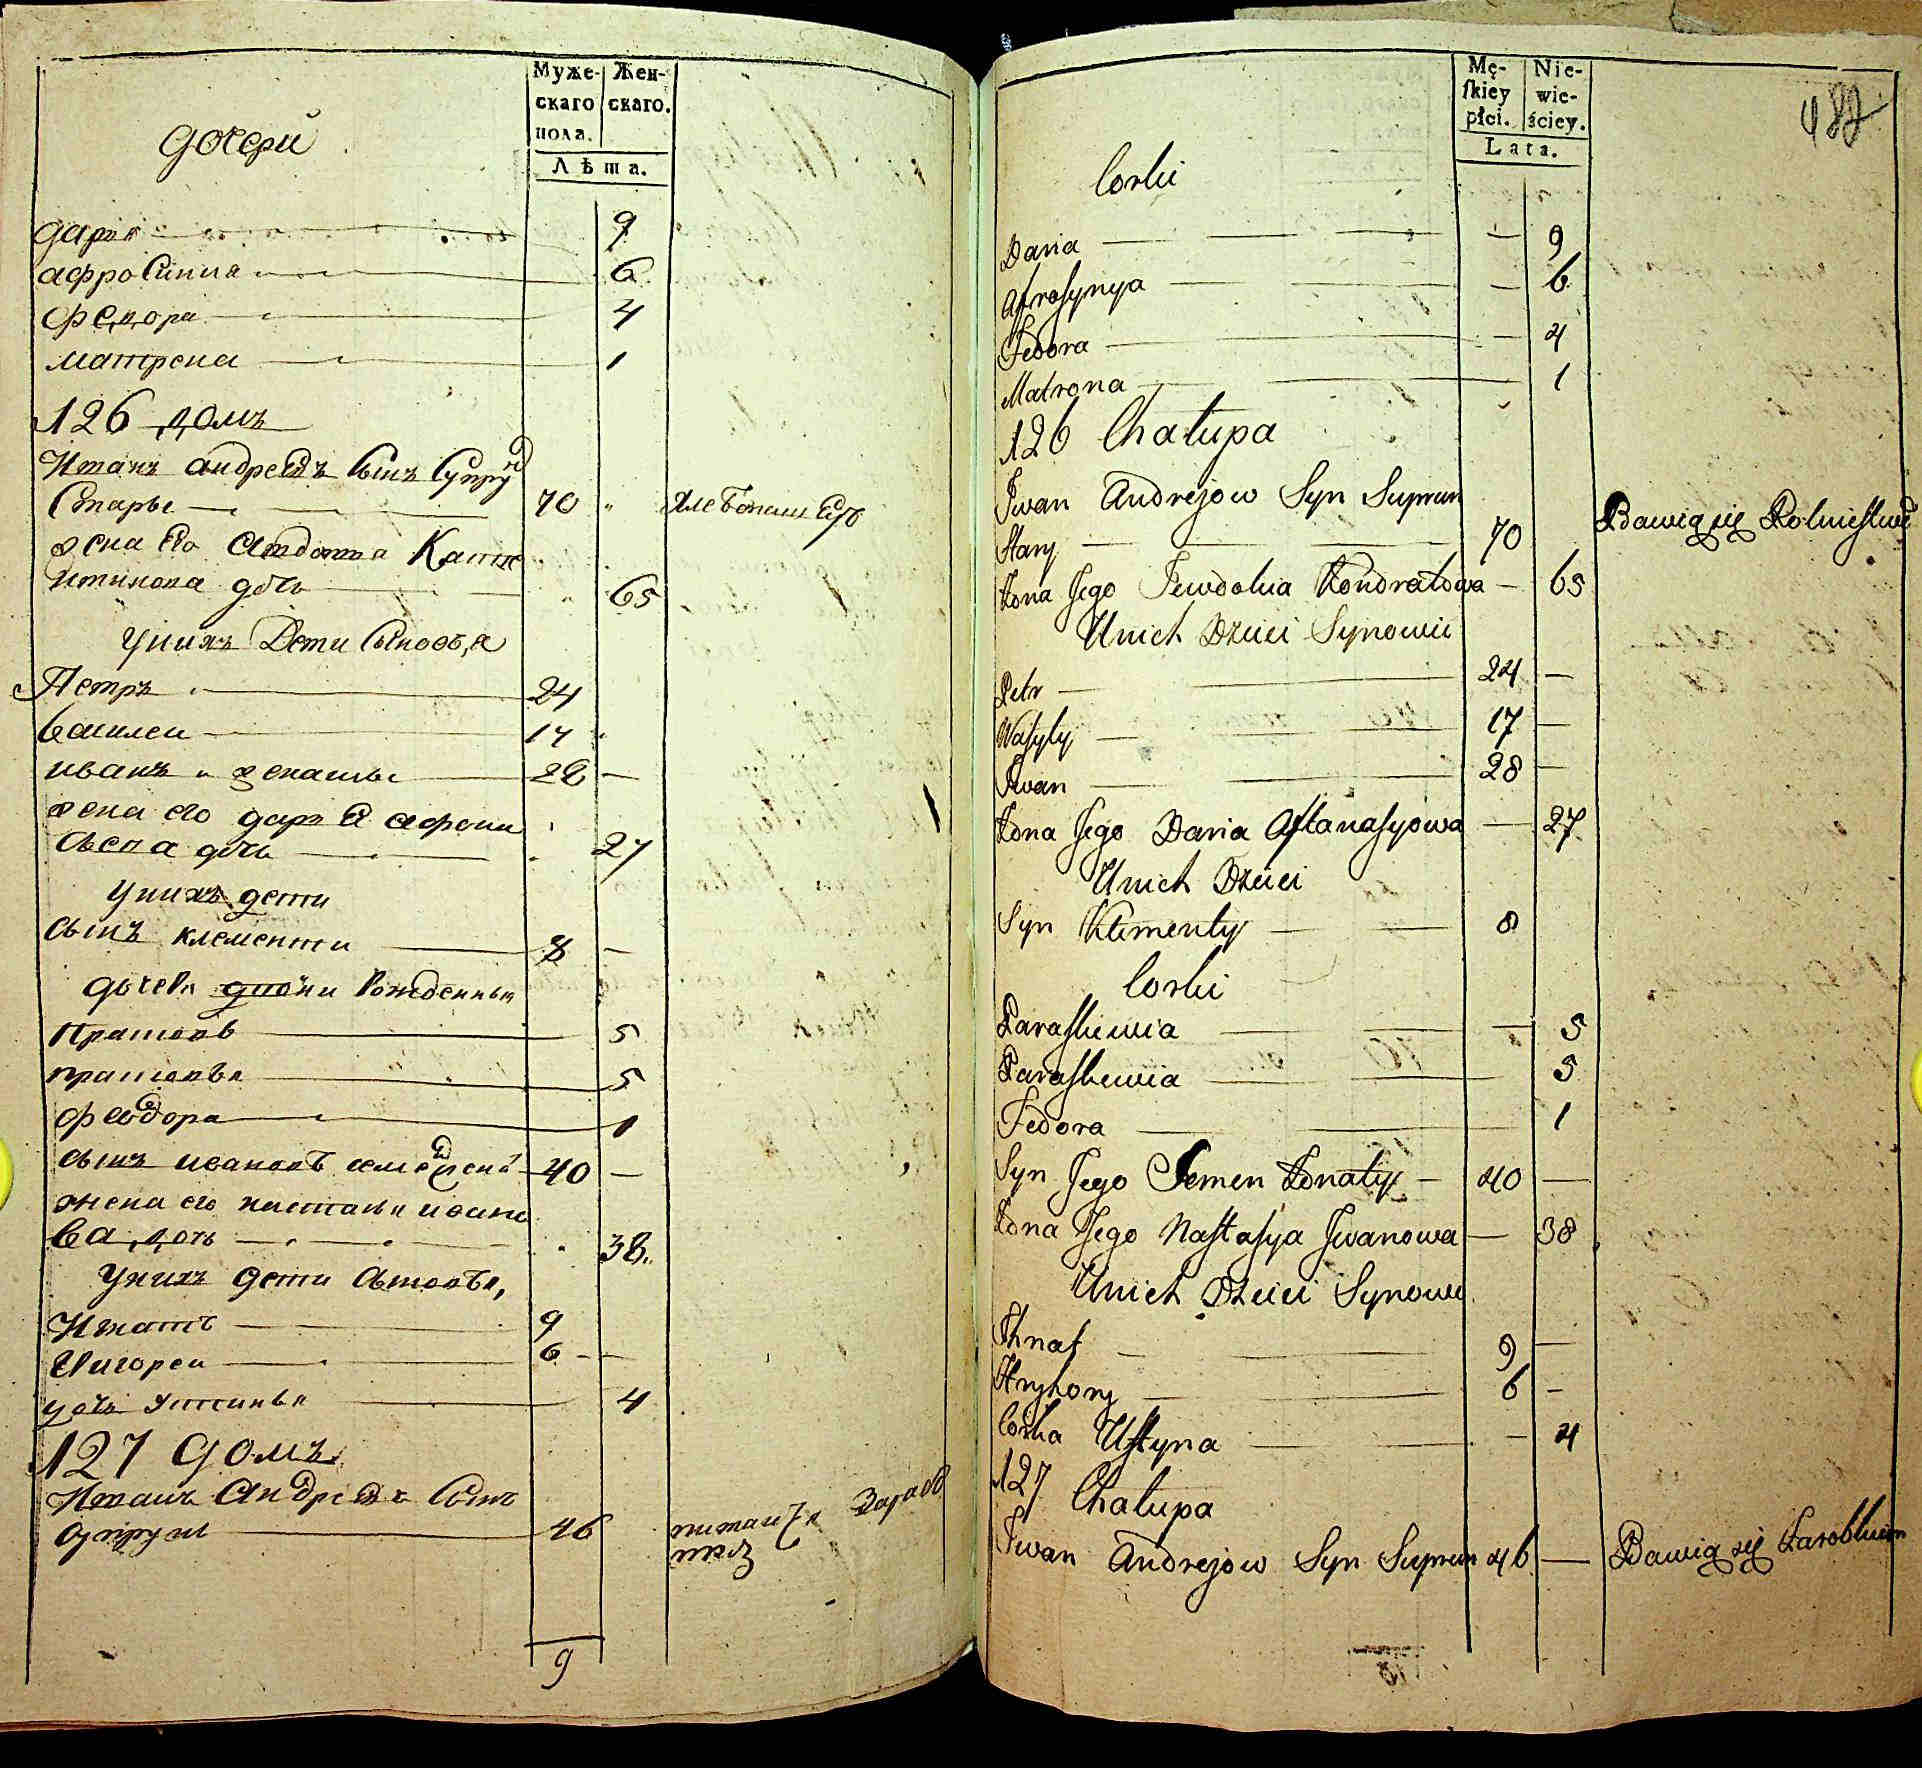 Муже-
скаго
пола.
Жен-
скаго.
Лѣта.
дочери
дарья 9
афросиния 6
федора 4
матрена 1
126 домъ
Иванъ андреевъ сынъ Супрун
Стары 70
жена его
дочь 65
У нихъ Дети Сыновья
Петръ 24
василеи 17
иванъ женаты 28
жена его дарья афона
сьева дочь 27
У нихъ дети
сынъ клементи 8
дочери Рожденныя
5
5
феодора 1
сынъ ивановъ семен 40
жена его настасья ивано
ва дочь 38
У нихъ дети
Игнатъ 9
Григореи 6
дочь устинья 4
127 домъ
Иванъ Андреевъ Сынъ
супрун 46
питаитца Зараб
9
Mę-
skiey
płci.
Nie-
wie-
ściey.
Lata.
487
Corki
Daria 9
Afrosynya 6
Fedora 4
Matrona 1
126 Chałupa
Jwan Andrejow Syn Suprun
Stary 70 Bawią się Rolnictwe
Żona Jego Jewdokia Kondratowa 65
Unich Dzieci Synowie
Petr 24
Wasyly 17
Jwan 28
Żona Jego Daria Aftanasyowa 27
Unich Dzieci
Syn Klimenty 8
Corki
Paraskiewia 5
Paraskewia 5
Fedora 1
Syn Jego Semen Żonaty 40
Żona Jego Nastasya Jwanowa 38
Unich Dzieci Synowie
Jhnat 9
Hryhory 6
Corka Ustyna 4
127 Chałupa
Jwan Andrejow Syn Suprun 46 Bawią się Zarobkiem